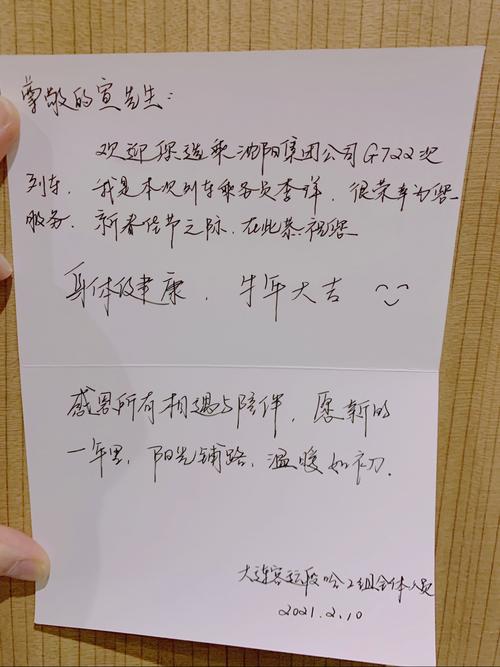 尊敬的宣先生：
欢迎您选乘沈阳集团公司G722次
列车，我是本次列车乘务员李洋，很荣幸为您
服务，新春佳节之际，在此恭祝您
身体健康，牛年大吉
感恩所有相遇与陪伴，愿新的
一年里，阳光铺路，温暖如初．
大连客运段哈2组全体人员
2021.2.10